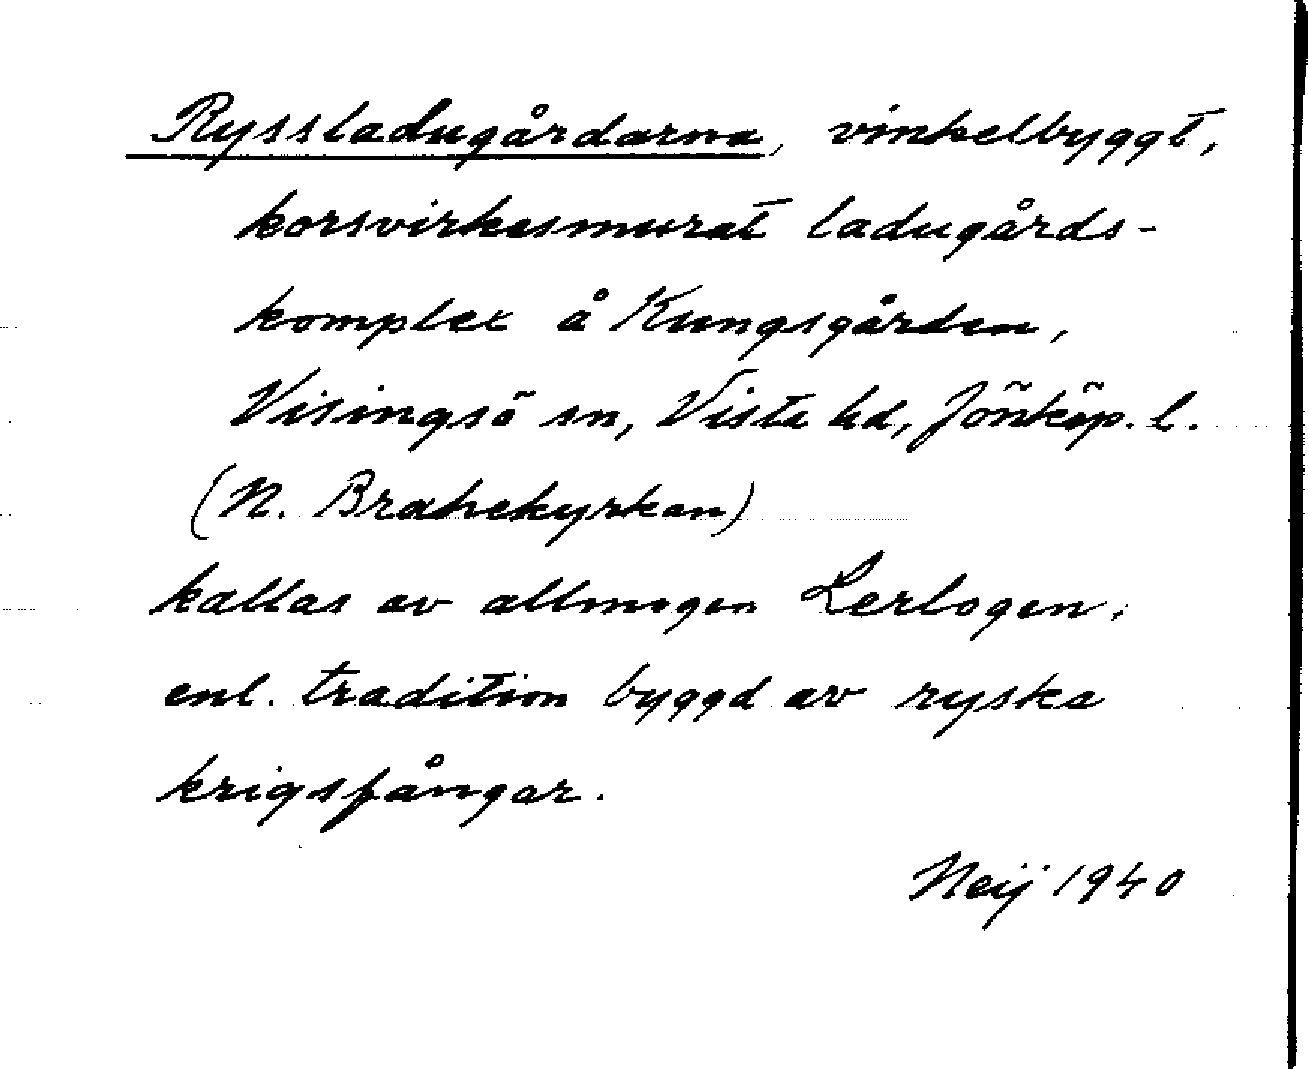 Ryssladugårdarna, vinkelbyggt,
korsvirkesmurat ladugårds-
komplex å Kungsgården,
Visingsö sn, Vista hd, Jönköp. l.
(N. Brahekyrkan)
kallas av allmogen Lerlogen,
enl. tradition byggd av ryska
krigsfångar.
Neij 1940